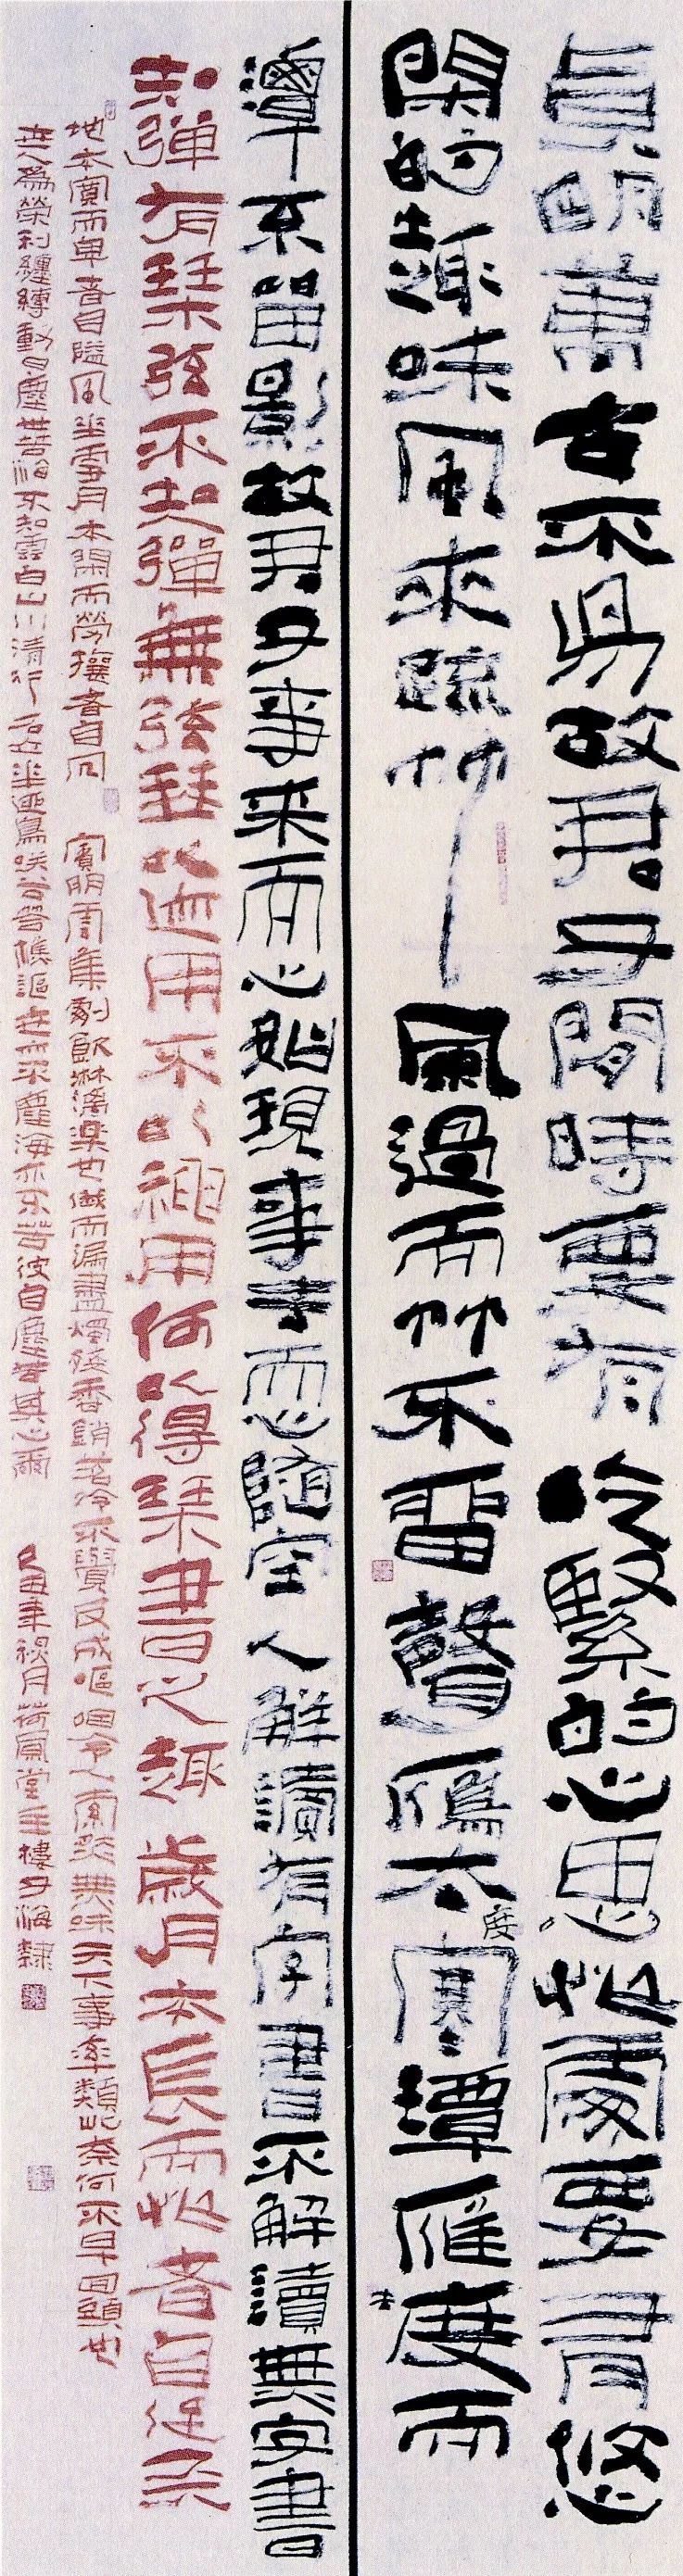 貞明萬古不易故君子閒時要有吃緊的心思忙處要有悠
閑的趣味風來疏竹風過而竹不留聲鴈去度寒潭雁度去而
潭不留影故君子事來而心始現事去而心隨空人解讀有字書不解讀無字書
知彈有琴弦不知彈無弦琴以迹用不以神用何以得琴書之趣歲月本長而忙者自促天
地本寬而卑者自隘風花雪月本閑而勞攘者自冗 賓朋雲集劇飲淋漓樂也俄而漏盡燭殘香銷茗冷不覺反成嘔咽令人索然無味天下事率類此奈何不早回頭也
世人為榮利纏縛動曰塵世苦海不知雲白山川清行石立花迎鳥咲谷答樵謳世亦不塵海亦不苦彼自塵苦其心爾 年秋月荷風堂主樓子海隸